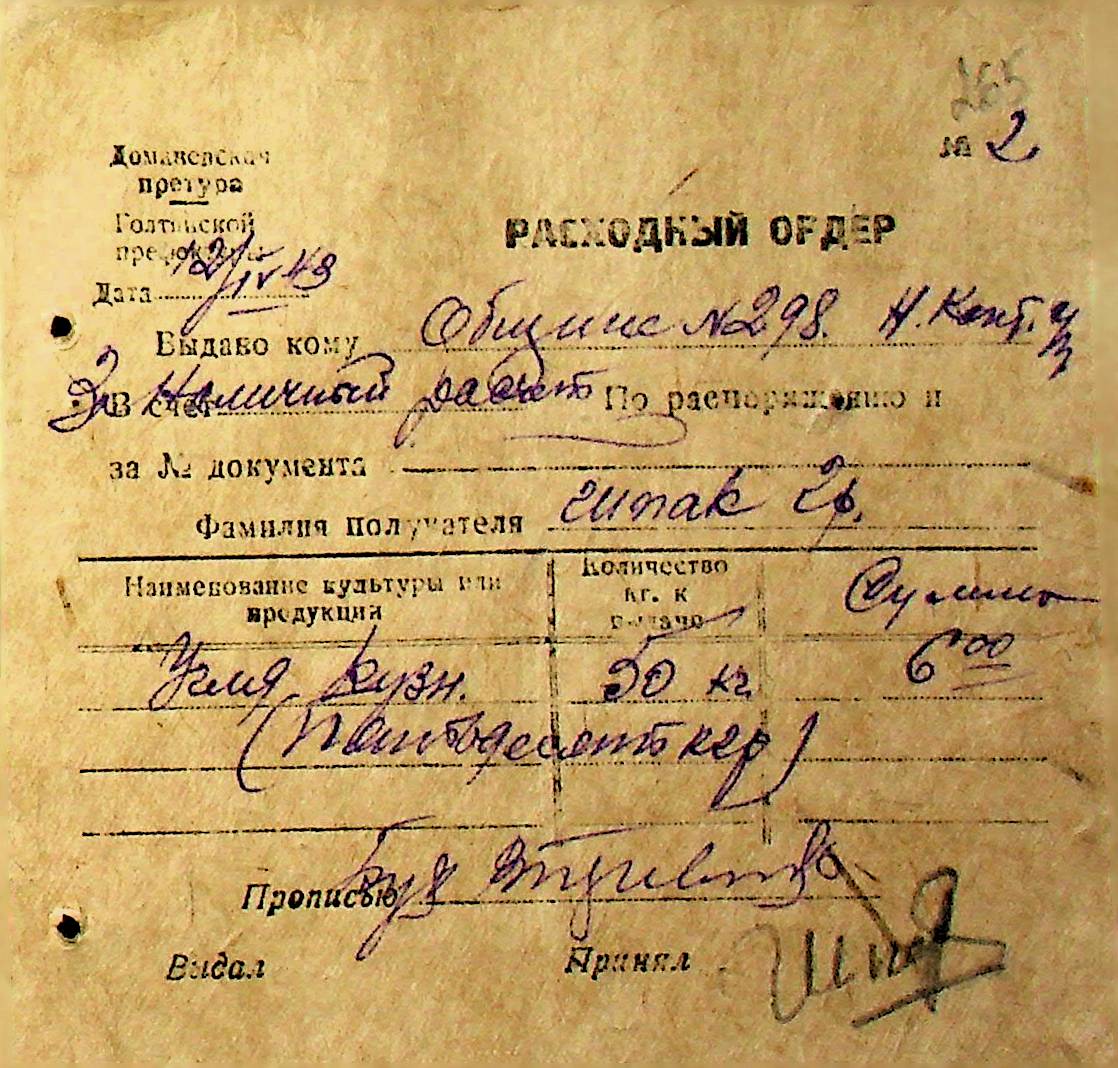 265
№ 2
Доманевская
претура
Голтянской
префектуры
РАСХОДНЫЙ ОРДЕР
Дата 12/IV 43
Выдано кому Общине № 298. Н. Кант.
В счет За Наличный расчет По распоряжению и
за № документа
Фамилия получателя Шпак Гр.
Наименование культуры или продукции
Количество кг. к выдаче
Сумма
Угля кузн. 50 кг 6 00
(Пятьдесят кгр)
Прописью
Выдал Принял